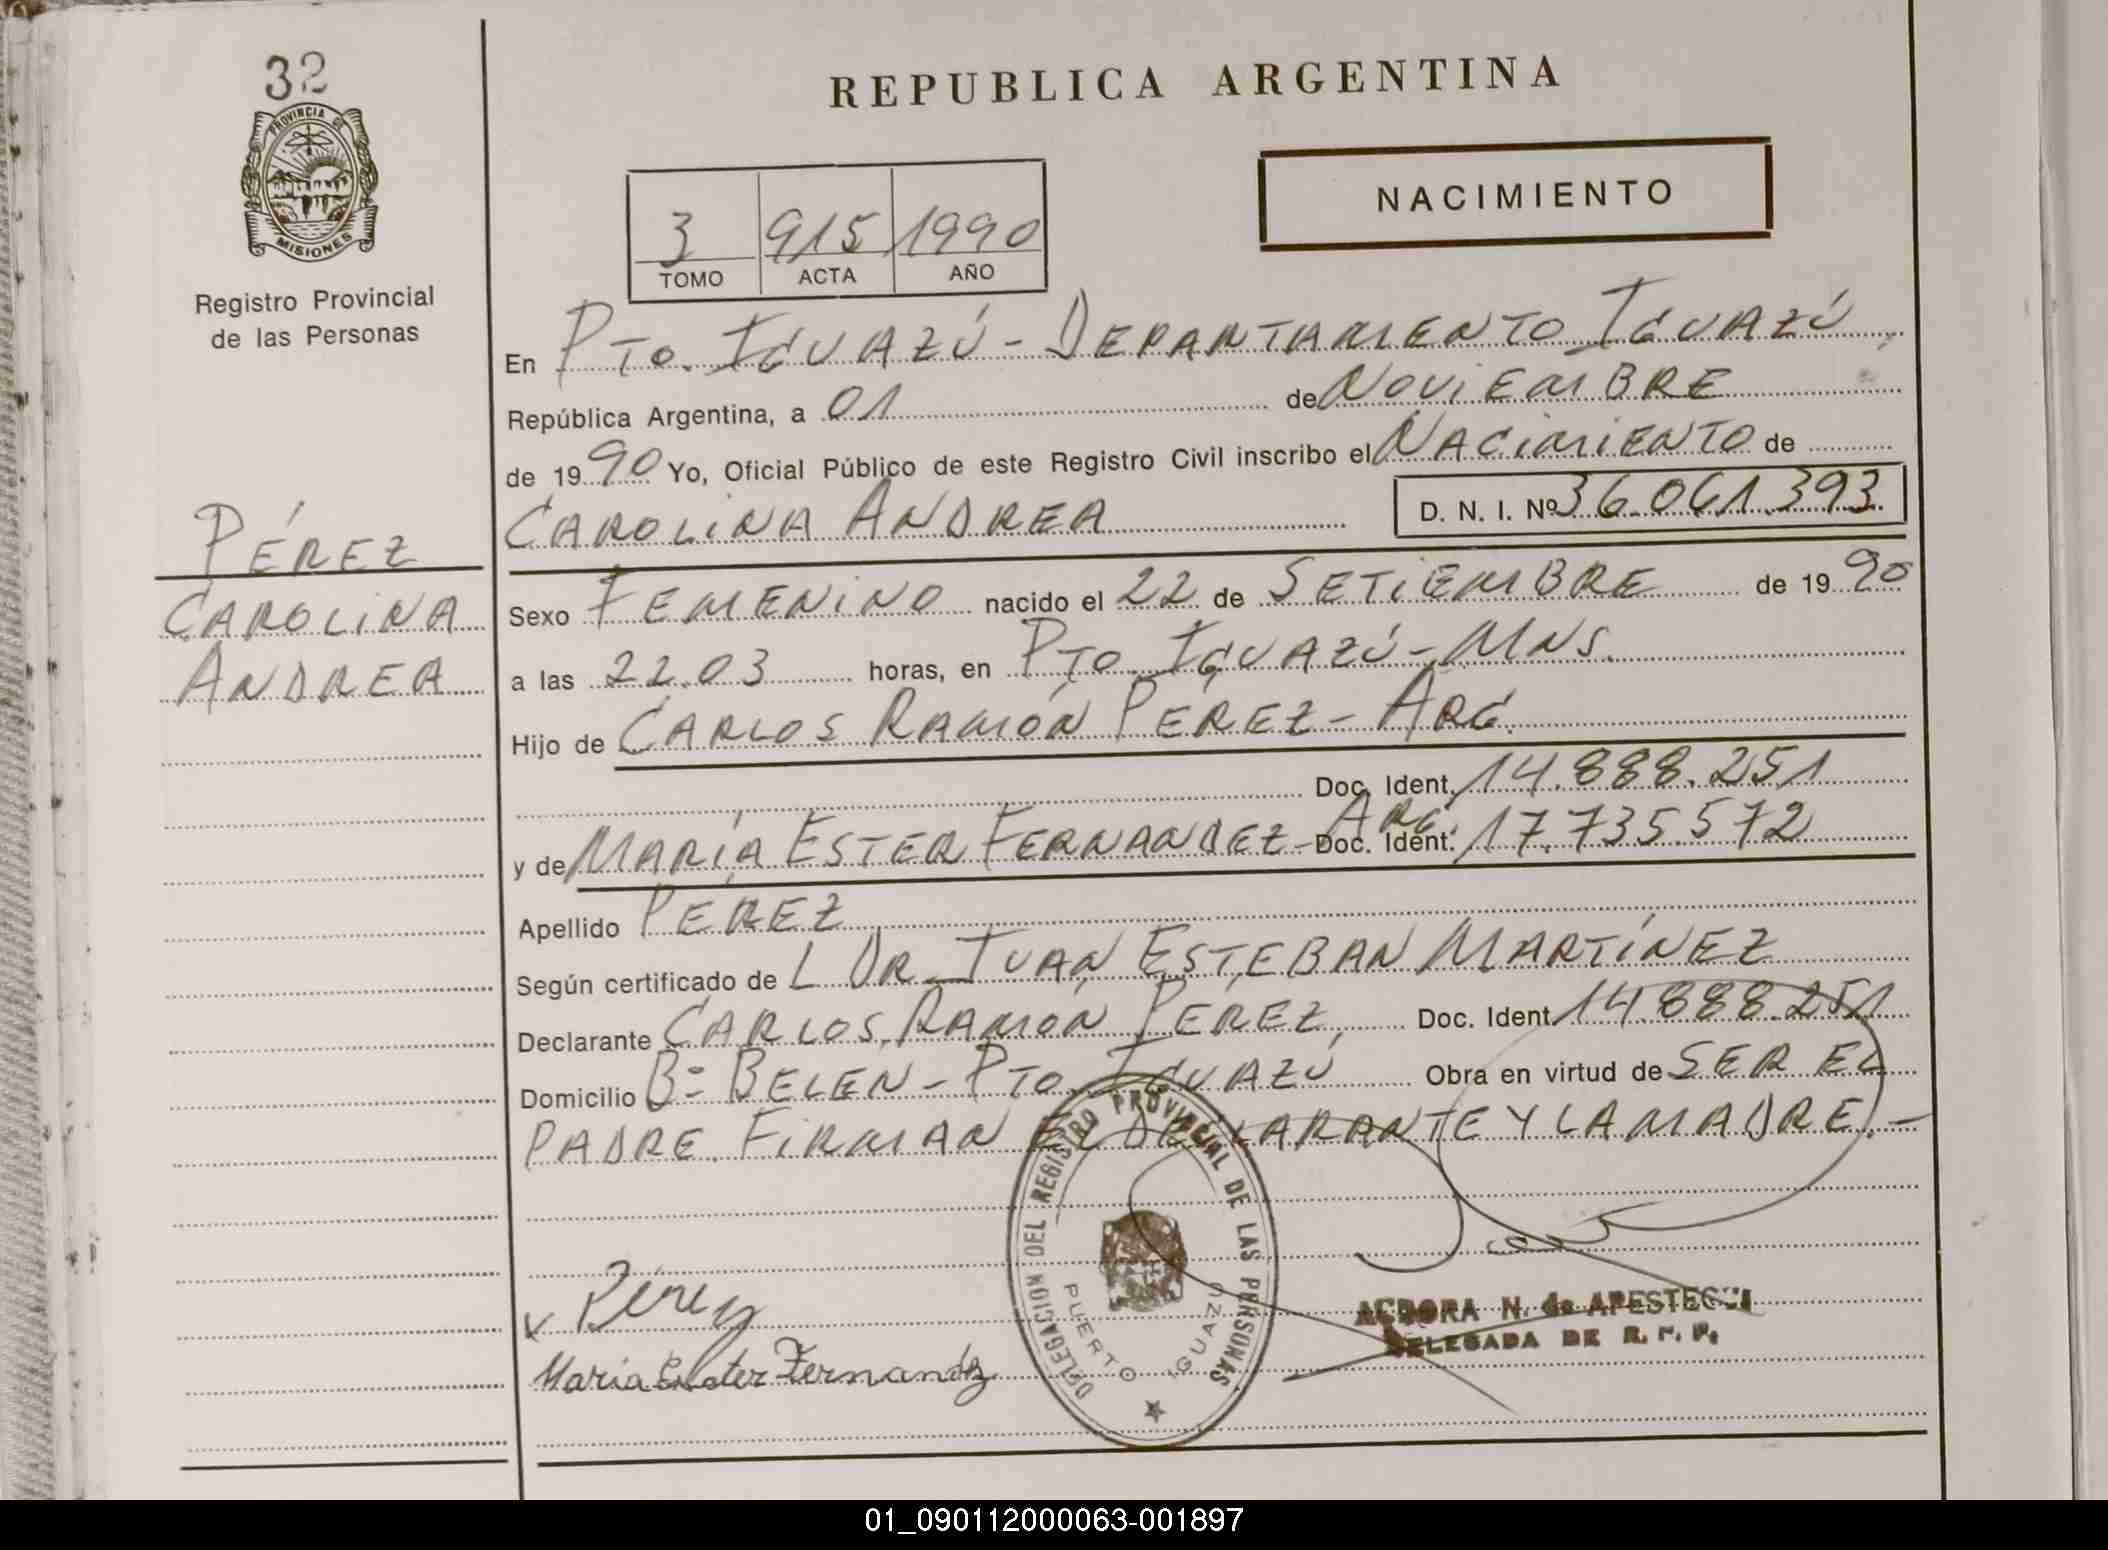 32
PROVINCIA DE
MISIONES
Registro Provincial
de las Personas
REPUBLICA ARGENTINA
NACIMIENTO
3 915 1990
TOMO ACTA AÑO
En PTO. IGUAZÚ - DEPARTAMENTO IGUAZÚ,
República Argentina, a 01 de NOVIEMBRE
de 1990 Yo, Oficial Público de este Registro Civil inscribo el NACIMIENTO de
CAROLINA ANDREA D. N. I. Nº 36.061.393
PÉREZ
CAROLINA
ANDREA
Sexo FEMENINO nacido el 22 de SETIEMBRE de 1990
a las 22.03 horas, en PTO. IGUAZÚ - MNS.
Hijo de CARLOS RAMÓN PEREZ - ARG.
Doc. Ident. 14.888.251
y de MARÍA ESTER FERNANDEZ - ARG. Doc. Ident. 17.735.572
Apellido PEREZ
Según certificado de L DR. JUAN ESTEBAN MARTÍNEZ
Declarante CARLOS RAMÓN PEREZ, Doc. Ident. 14.888.251
Domicilio Bº BELEN - PTO. IGUAZÚ Obra en virtud de SER EL
PADRE. FIRMAN EL DECLARANTE Y LA MADRE. -
DELEGACION DEL REGISTRO PROVINCIAL DE LAS PERSONAS
PUERTO IGUAZU
x Pérez
Maria Ester Fernandez
N. de APESTEGUI
DELEGADA DE R. P. P.
01_090112000063-001897